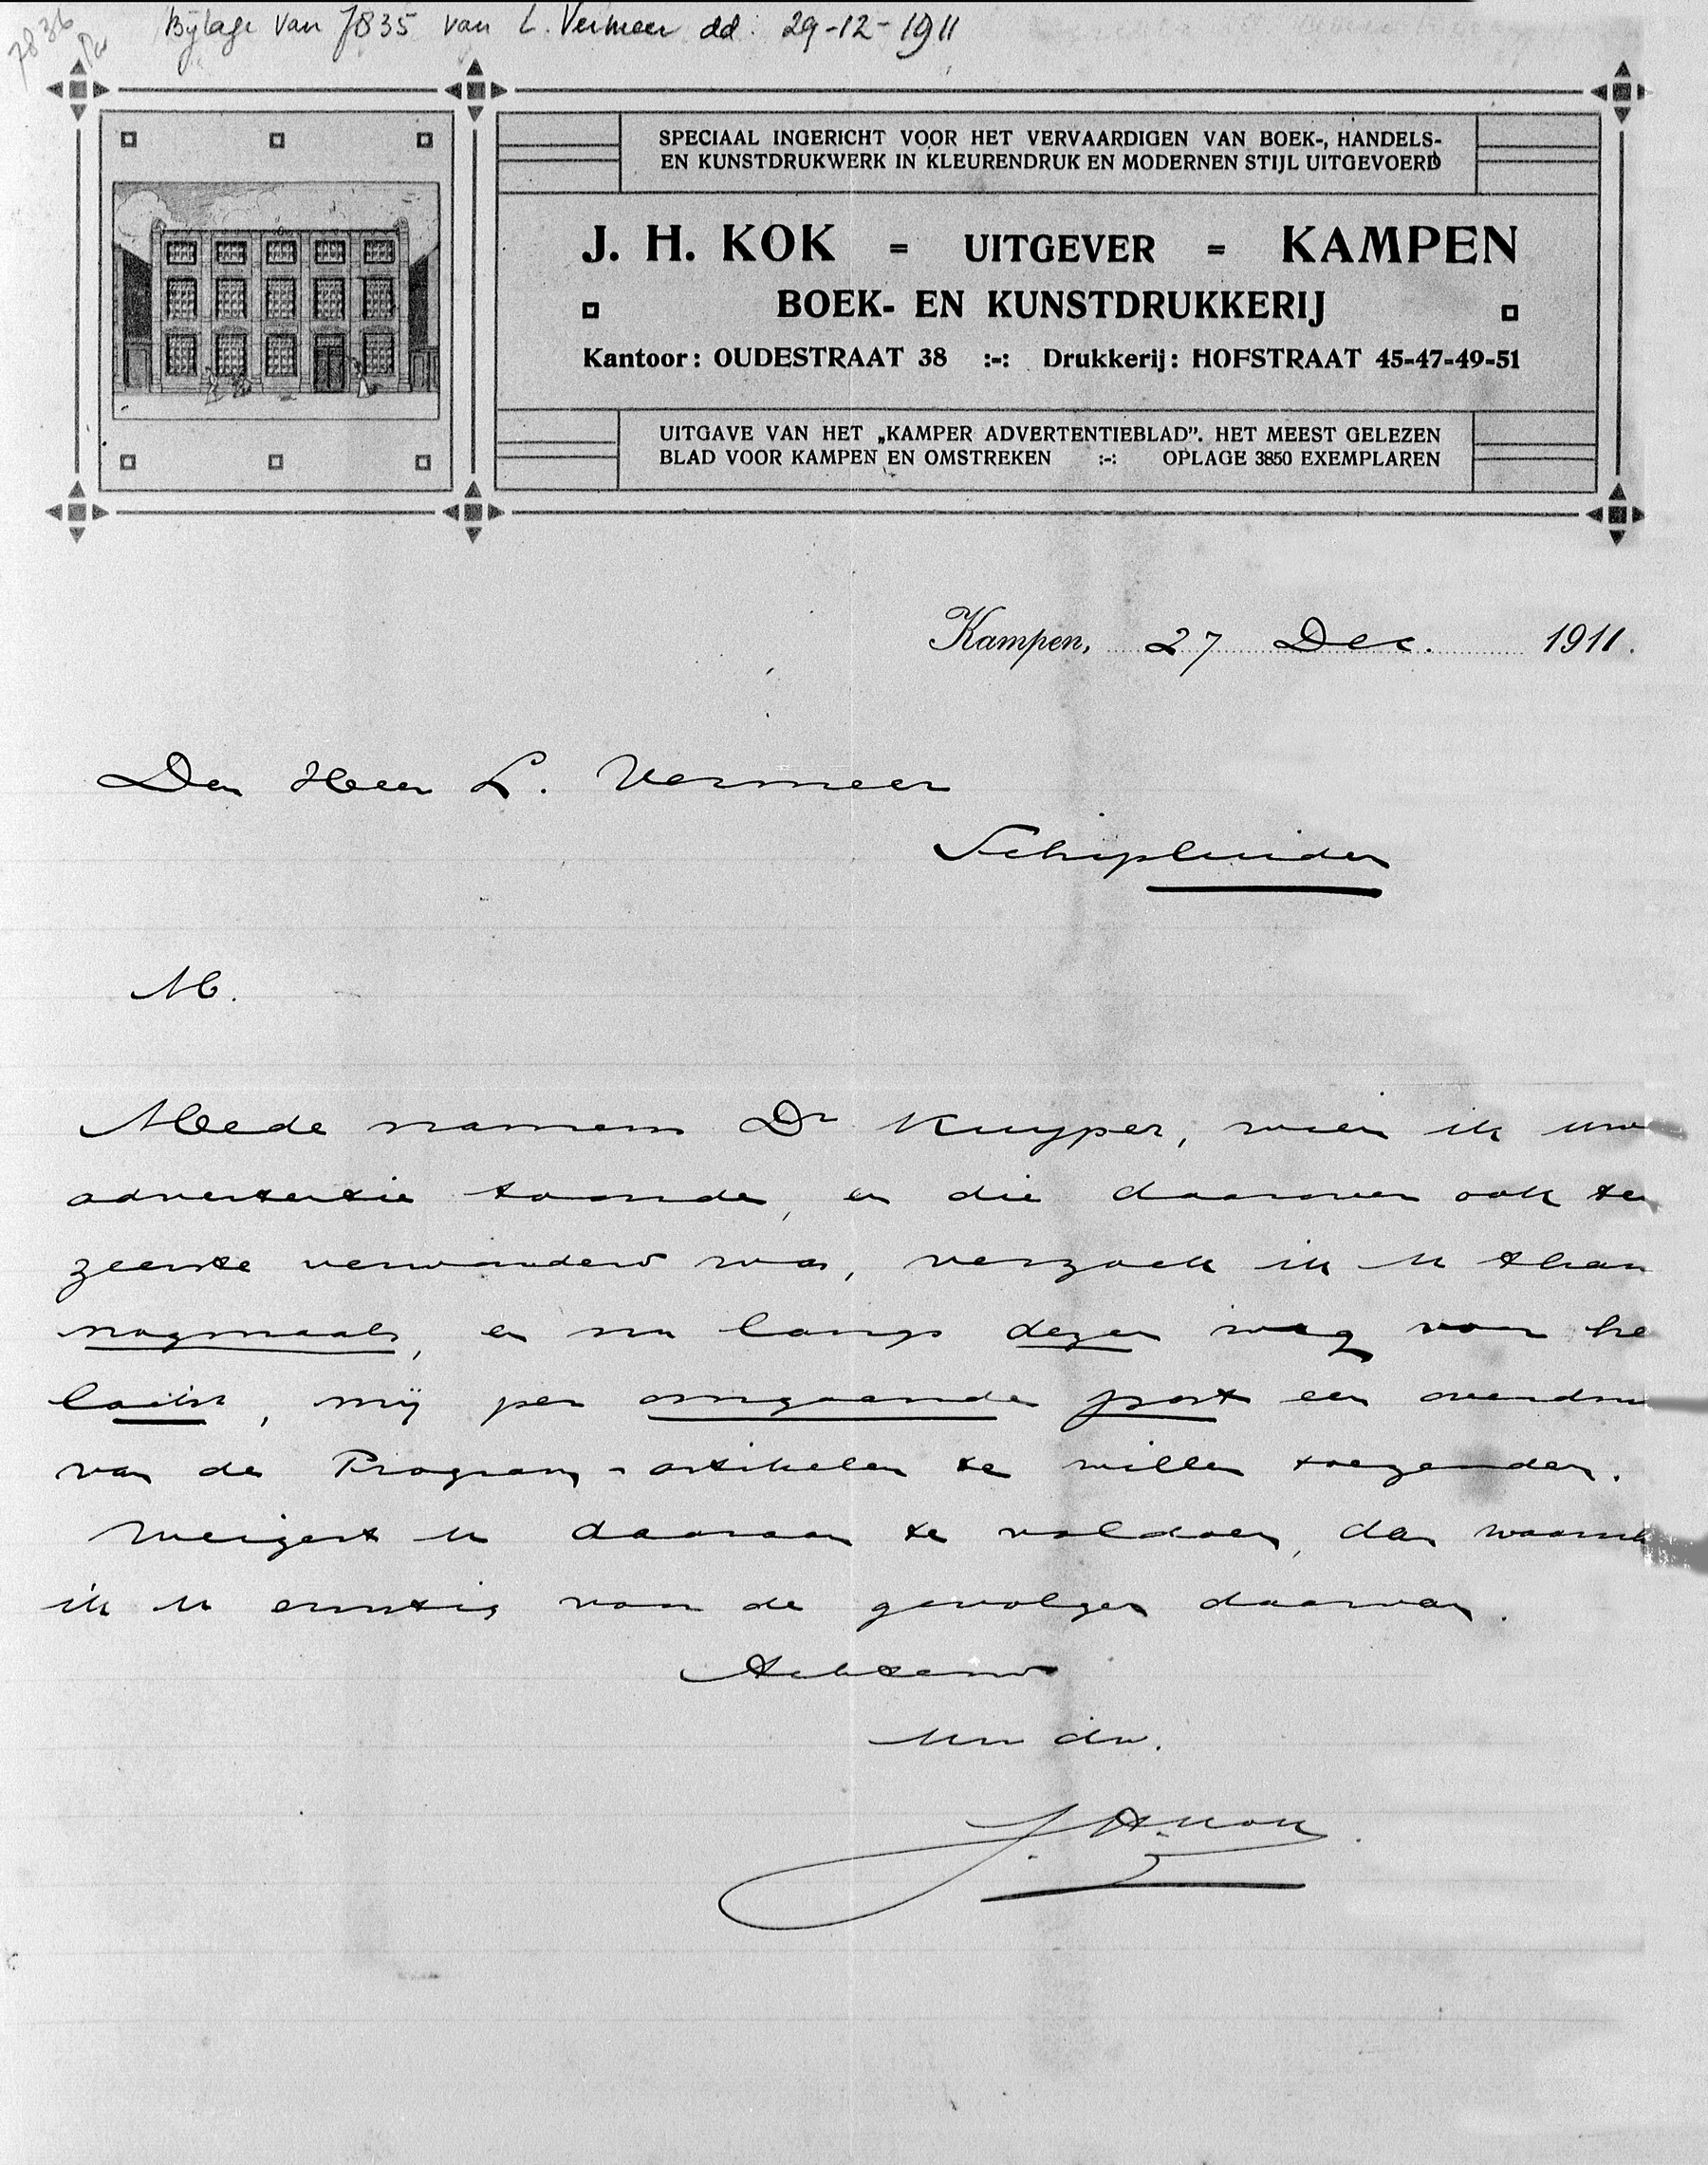 7836
Bijlage van 7835 van L. Vermeer dd: 29-12-1911
SPECIAAL INGERICHT VOOR HET VERVAARDIGEN VAN BOEK-, HANDELS-
EN KUNSTDRUKWERK IN KLEURENDRUK EN MODERNEN STIJL UITGEVOERD
J. H. KOK = UITGEVER = KAMPEN
BOEK- EN KUNSTDRUKKERIJ
Kantoor: OUDESTRAAT 38 :-: Drukkerij: HOFSTRAAT 45-47-49-51
UITGAVE VAN HET „KAMPER ADVERTENTIEBLAD”. HET MEEST GELEZEN
BLAD VOOR KAMPEN EN OMSTREKEN :-: OPLAGE 3850 EXEMPLAREN
Kampen, 27 Dec. 1911.
Den Heer L. Vermeer
Schipluiden
M.
Mede namens Dr Kuyper, wien ik uw
advertentie toonde, en die daarover ook ten
zeerste verwonderd was, verzoek ik u than
nogmaals, en nu langs dezen weg voor he
laatst, mij per omgaande post een overdru
van de Program-artikelen te willen toezenden.
Weigert u daaraan te voldoen, dan waarsch
ik u ernstig voor de gevolgen daarvan.
Achtend
Uw dw.
J. H. Kok